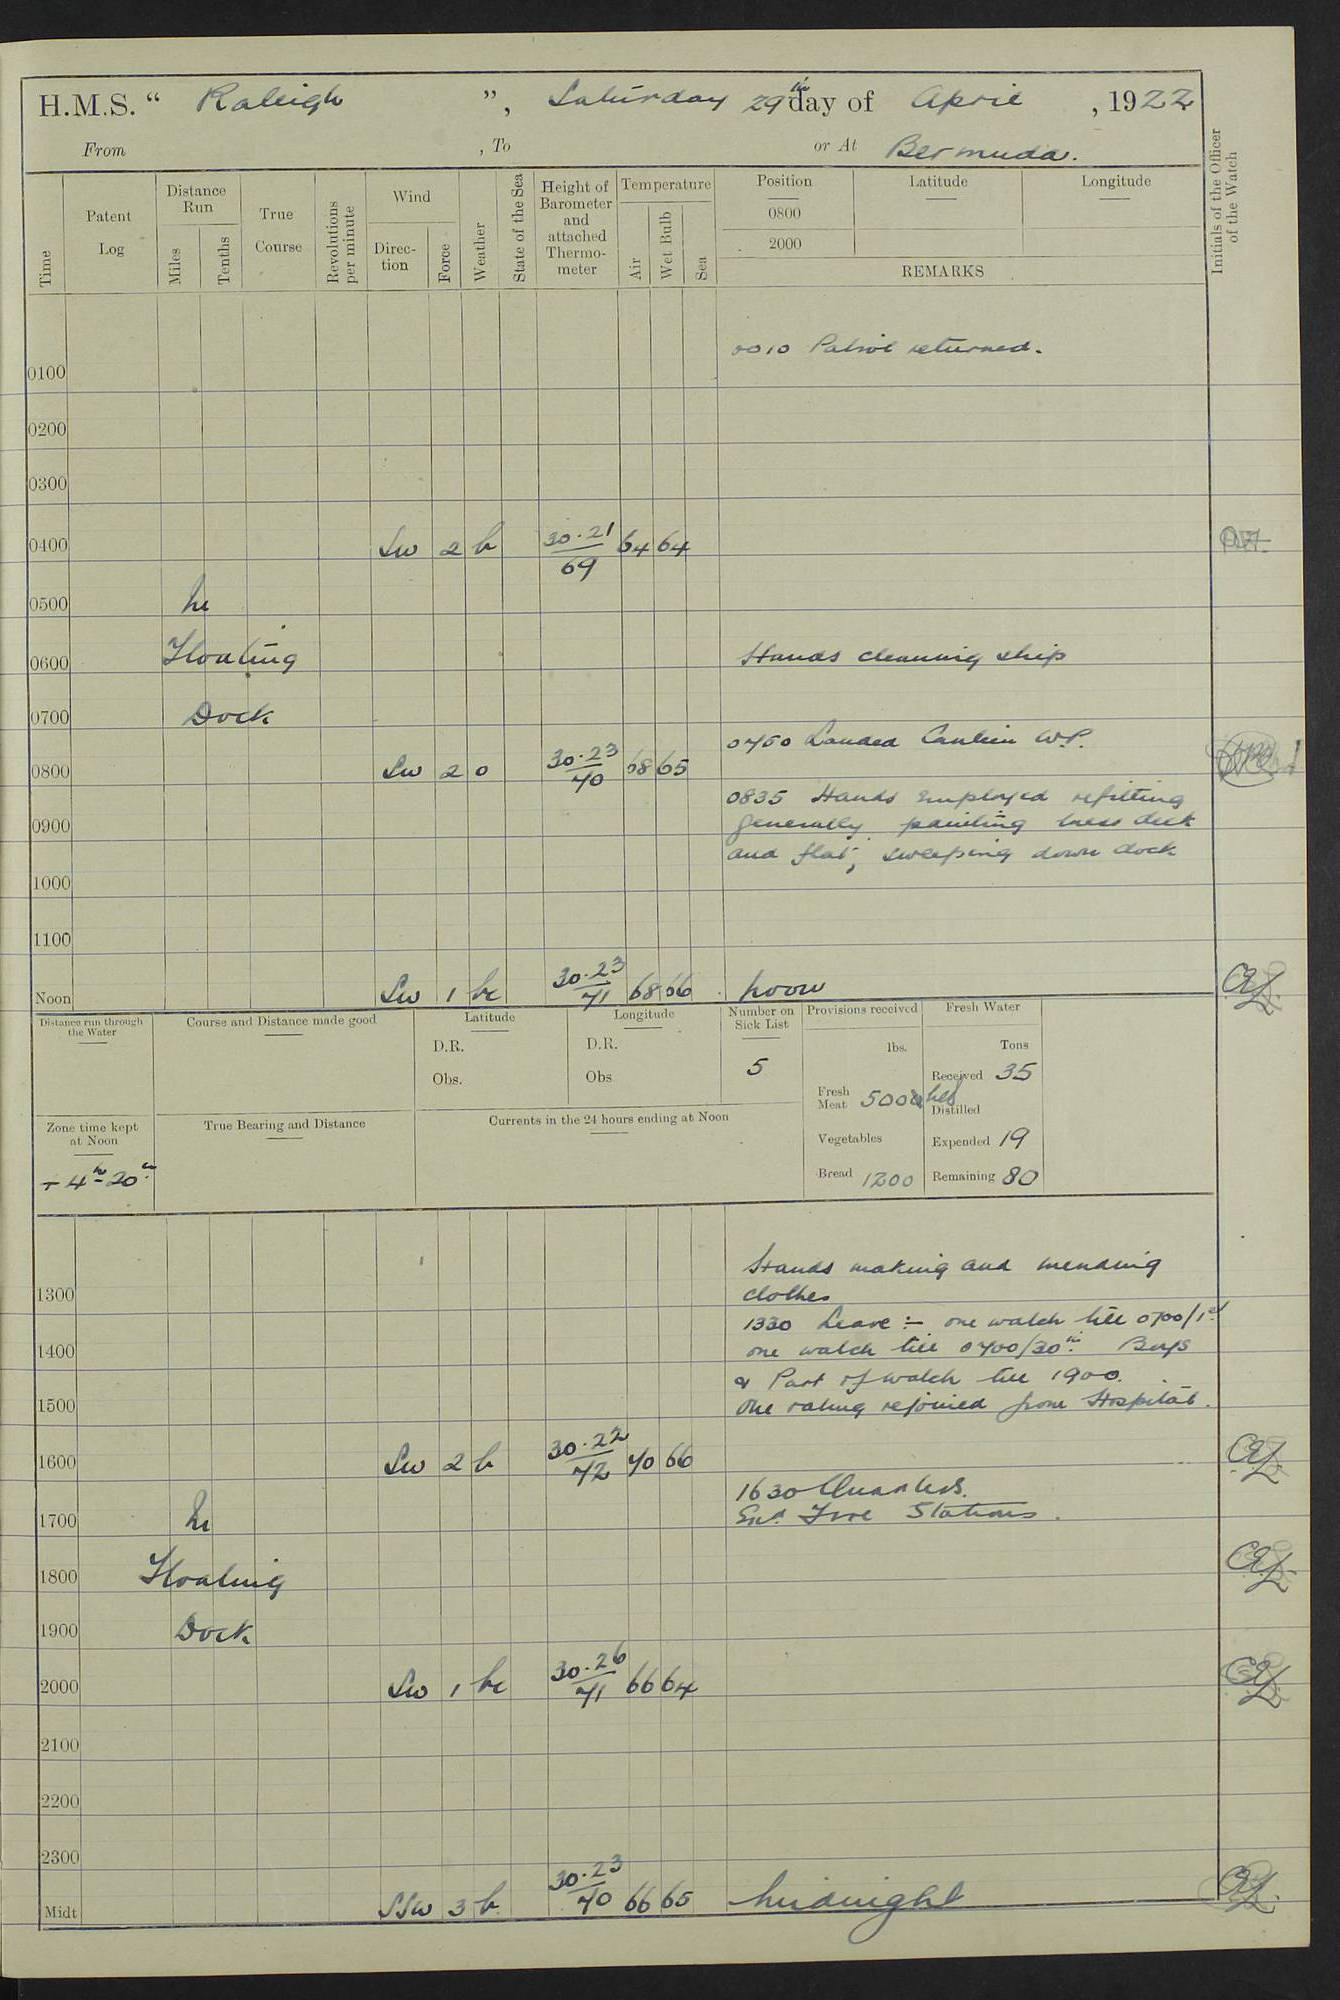 H.M.S. “ Raleigh ”, Saturday 29th day of April , 1922
From , To or At Bermuda.
Time
Patent Log
Distance Run
Miles
Tenths
True Course
Revolutions per minute
Wind
Direction
Force
Weather
State of the Sea
Height of Barometer and attached Thermometer
Temperature
Air
Wet Bulb
Sea
Position
0800
2000
Latitude
Longitude
REMARKS
Initials of the Officer of the Watch
0010 Patrol returned.
0100
0200
0300
0400 SW 2 b 30.21/69 64 64
0500 In
0600 Floating Hands cleaning ship
0700 Dock
0750 Landed Canteen W.P.
0800 SW 2 o 30.23/70 68 65
0835 Hands employed refitting
0900 generally, painting mess deck
and flat, sweeping down dock
1000
1100
Noon SW 1 bc 30.23/71 68 66 Noon
Distance run through the Water
Course and Distance made good
Latitude
D.R.
Obs.
Longitude
D.R.
Obs
Number on Sick List
5
Provisions received
lbs.
Fresh Meat 500
Vegetables
Bread 1200
Fresh Water
Tons
Received 35
Distilled
Expended 19
Remaining 80
Zone time kept at Noon
+ 4h 20m
True Bearing and Distance
Currents in the 24 hours ending at Noon
Hands making and mending
1300 clothes
1330 Leave :- one watch till 0700/1st
1400 one watch till 0700/30th. Boys
& Part of watch till 1900.
1500 One rating rejoined from Hospital.
1600 SW 2 b 30.22/72 70 66
1630 Quarters.
1700 In Exd. Fire Stations.
1800 Floating
1900 Dock
2000 SW 1 bc 30.26/71 66 64
2100
2200
2300
Midt SSW 3 b 30.23/70 66 65 Midnight